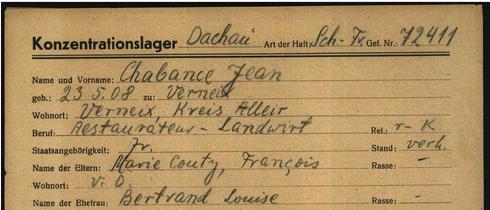 Konzentrationslager Dachau Art der Haft: Sch.-Fr. Gef. Nr.: 72411
Name und Vorname: Chabance Jean
geb.: 23.5.08 zu: Verneix
Wohnort: Verneix, Kreis Alleir
Beruf: Restaurateur-Landwirt Rel.: r-K
Staatsangehörigkeit: Fr. Stand: verh.
Name der Eltern: Marie Couty, François Rasse: -
Wohnort: v. O.
Name der Ehefrau: Bertrand Louise Rasse: -